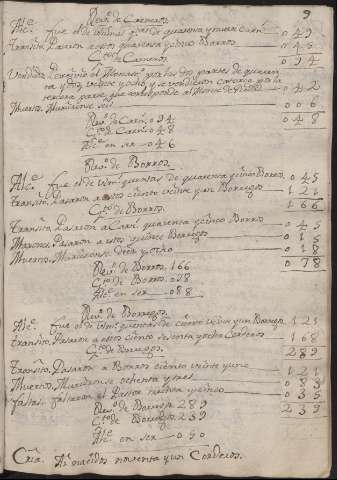 9
Reso. de Carneros
Alce. fue el de Ultimas qtas. de quarenta y nueve Carns. 049
Transito. Pasaron a estos quarenta y cinco Borros 045
Gto. de Carneros 094
quaren
ta y dos
tercera parte que 042
Muertos. Murieronse seis 006
Reso. de Carns. 094 048
Gto. de Carns. 048
Alce. en ser 046
Reso. de Borros
Alce. fue el de Ultimas quentas de quarenta y cinco Borros 045
Transito. Pasaron a estos ciento veinte y un Borregos 121
Gto. de Borros. 166
Transito. Pasaron a Carns. quarenta y cinco Borros 045
Pasaron a estos quince Borregos 015
Muertos. Murieronse diez y ocho 018
Reso. de Borros. 166 078
Gto. de Borros. 078
Alce. en ser 088
Reso. de Borregos.
Alce. fue el de Ultimas quentas de ciento veinte y un Borregos 121
Transito. Pasaron a estos ciento sesenta y ocho Corderos 168
Gto. de Borregos. 289
Transito. Pasaron a Borros ciento veinte y uno 121
Muertos. Murieronse ochenta y tres 083
faltas. faltaron al Pastor treinta y cinco 035
Reso. de Borregos 289 239
Gto. de Borregos 239
Alce. en ser 050
Cria. An nacidos noventa y un Corderos.